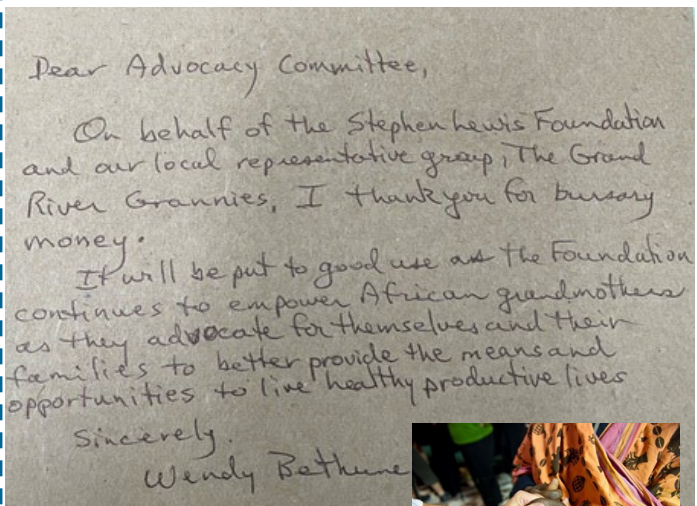 Dear Advocacy Committee,
On behalf of the Stephen Lewis Foundation
and our local representative group, The Grand
River Grannies, I thank you for bursary
money.
It will be put to good use as the Foundation
continues to empower African grandmothers
as they advocate for themselves and their
families to better provide the means and
opportunities to live healthy productive lives
Sincerely.
Wendy Bethune